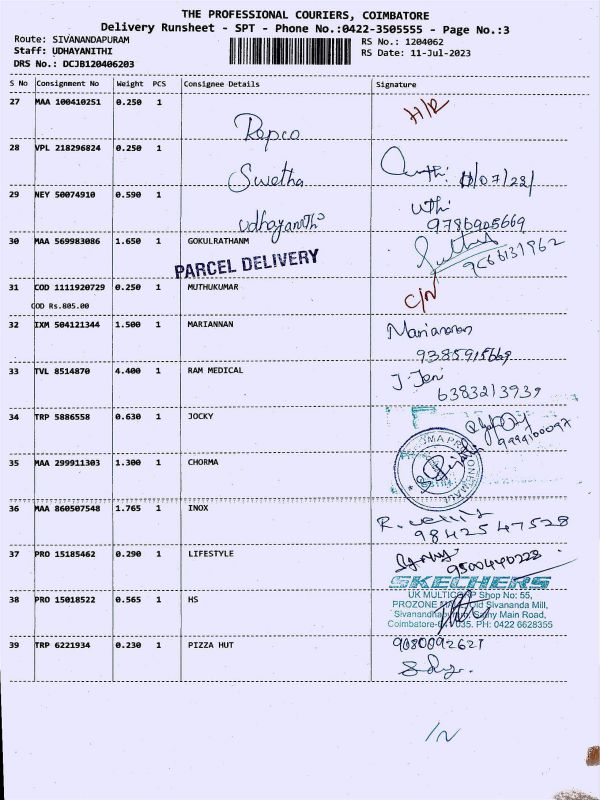 THE PROFESSIONAL COURIERS, COIMBATORE
Delivery Runsheet - SPT - Phone No.:0422-3505555 - Page No.:3
Route: SIVANANDAPURAM RS No.: 1204062
Staff: UDHAYANITHI RS Date: 11-Jul-2023
DRS No.: DCJB120406203
S No Consignment No Weight PCS Consignee Details Signature
27 MAA 100410251 0.250 1
H/R
Repco
28 VPL 218296824 0.250 1
Swetha
29 NEY 50074910 0.590 1
Uthi
9786905669
udhayanithi
30 MAA 569983086 1.650 1 GOKULRATHANM
9C66131962
PARCEL DELIVERY
31 COD 1111920729 0.250 1 MUTHUKUMAR
C/N
COD Rs.805.00
32 IXM 504121344 1.500 1 MARIANNAN
Mariannan
9385915669
33 TVL 8514870 4.400 1 RAM MEDICAL
J. Jeni
6383213939
34 TRP 5886558 0.630 1 JOCKY
9994100097
35 MAA 299911303 1.300 1 CHORMA
36 MAA 860507548 1.765 1 INOX
9842547528
37 PRO 15185462 0.290 1 LIFESTYLE
9500440228
SKECHERS
38 PRO 15018522 0.565 1 HS
UK MULTICORP Shop No: 55,
PROZONE MALL, Old Sivananda Mill,
Sivanandhapuram, Sathy Main Road,
Coimbatore-641035. PH: 0422 6628355
39 TRP 6221934 0.230 1 PIZZA HUT
9080092627